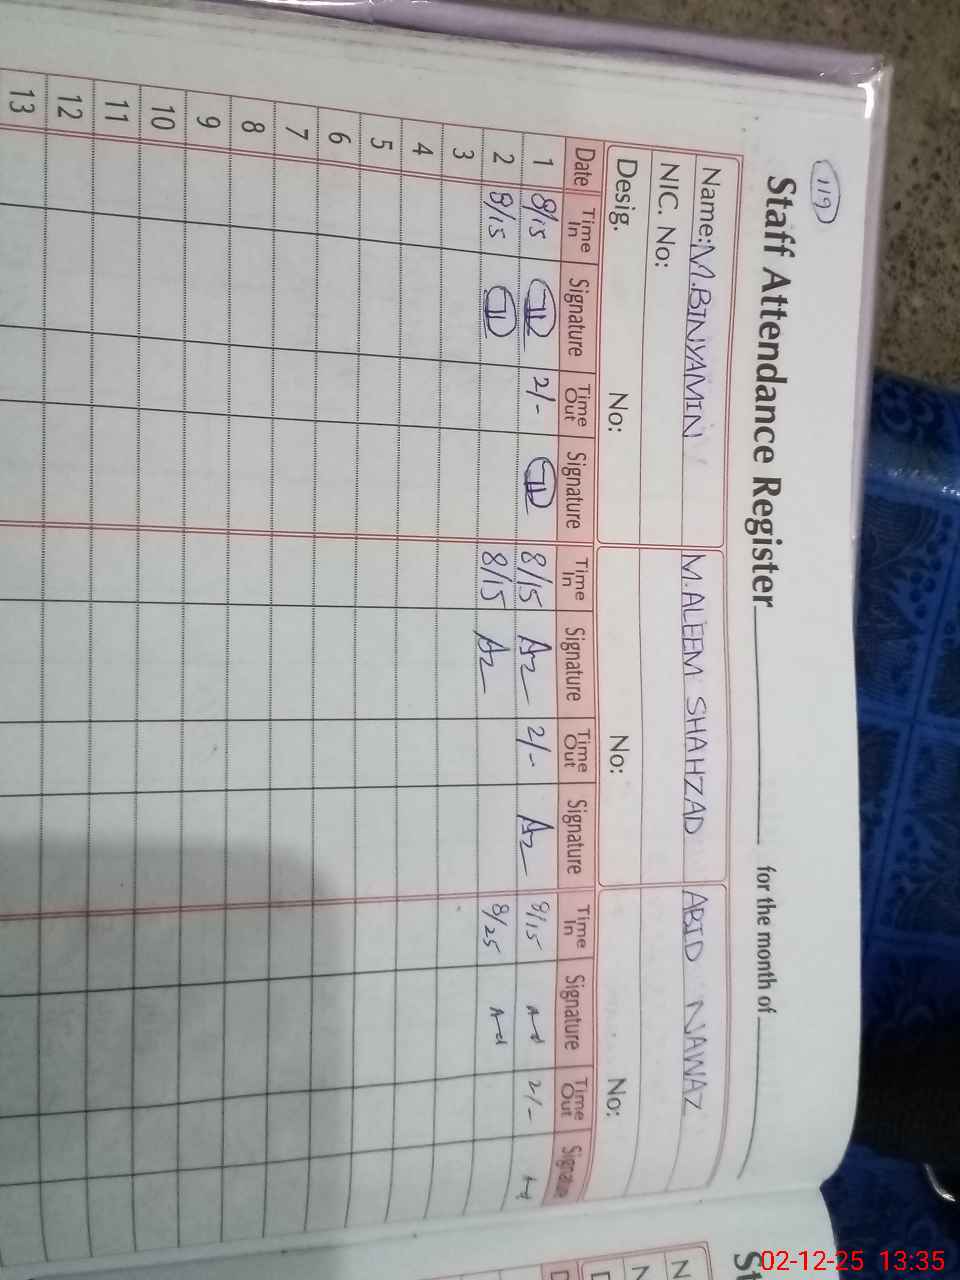 119
Staff Attendance Register for the month of
Name: M.BINYAMIN M.ALEEM SHAHZAD ABID NAWAZ
NIC. No:
Desig. No: No: No:
Date Time In Signature Time Out Signature Time In Signature Time Out Signature Time In Signature Time Out Signature
1 8/15 2/- 8/15 2/- 8/15 2/-
2 8/15 8/15 8/25
3
4
5
6
7
8
9
10
11
12
13
St
N
N
D
D
02-12-25 13:35